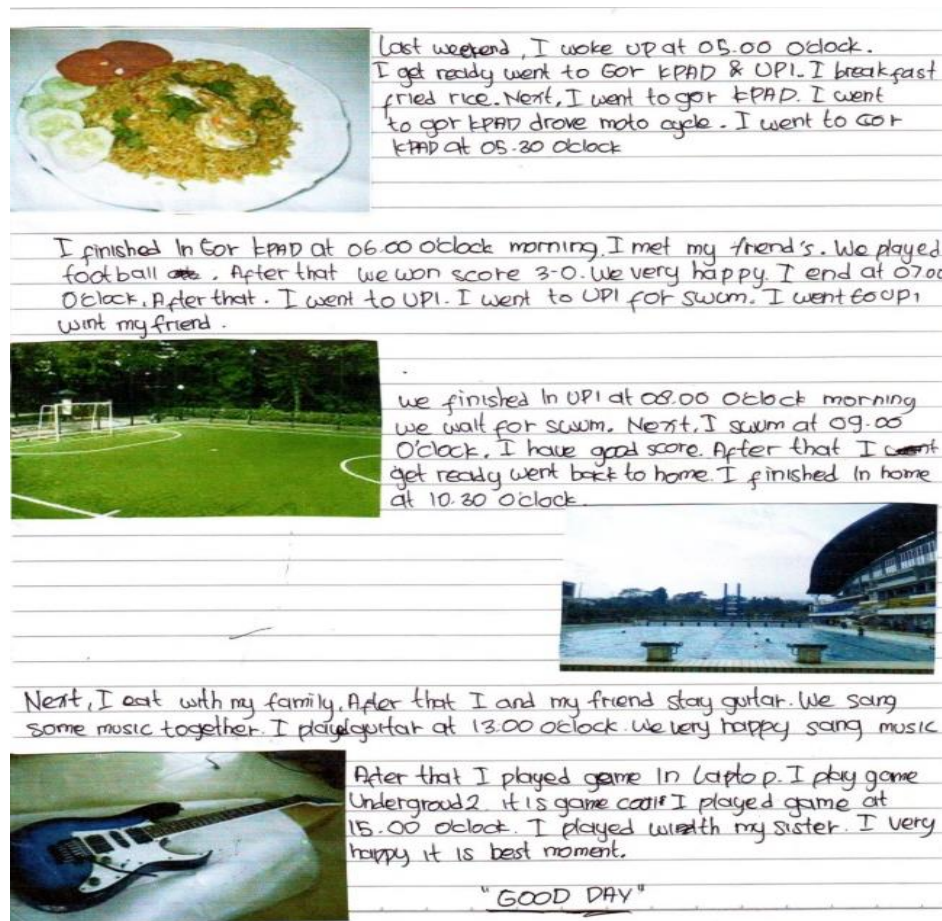 Last weekend, I woke up at 05.00 O'clock.
I get ready went to Gor KPAD & UPI. I breakfast
fried rice. Next, I went to gor KPAD. I went
to gor KPAD drove moto cycle. I went to Gor
KPAD at 05.30 O'clock
I finished In Gor KPAD at 06.00 o'clock morning. I met my friend's. We played
football . After that we won score 3-0. We very happy. I end at 07.00
O'clock, After that. I went to UPI. I went to UPI for swum. I went to UPI
wint my friend.
we finished In UPI at 08.00 O'clock morning
we wait for swum. Next, I swum at 09.00
O'clock. I have good score. After that I
get ready went back to home. I finished In home
at 10.30 O'clock.
Next, I eat with my family. After that I and my friend stay guitar. We sang
some music together. I played guitar at 13.00 O'clock. We very happy sang music
After that I played game In Laptop. I play game
Undergroud 2. it is game cool. I played game at
15.00 o'clock. I played with my sister. I very
happy it is best moment.
"GOOD DAY"